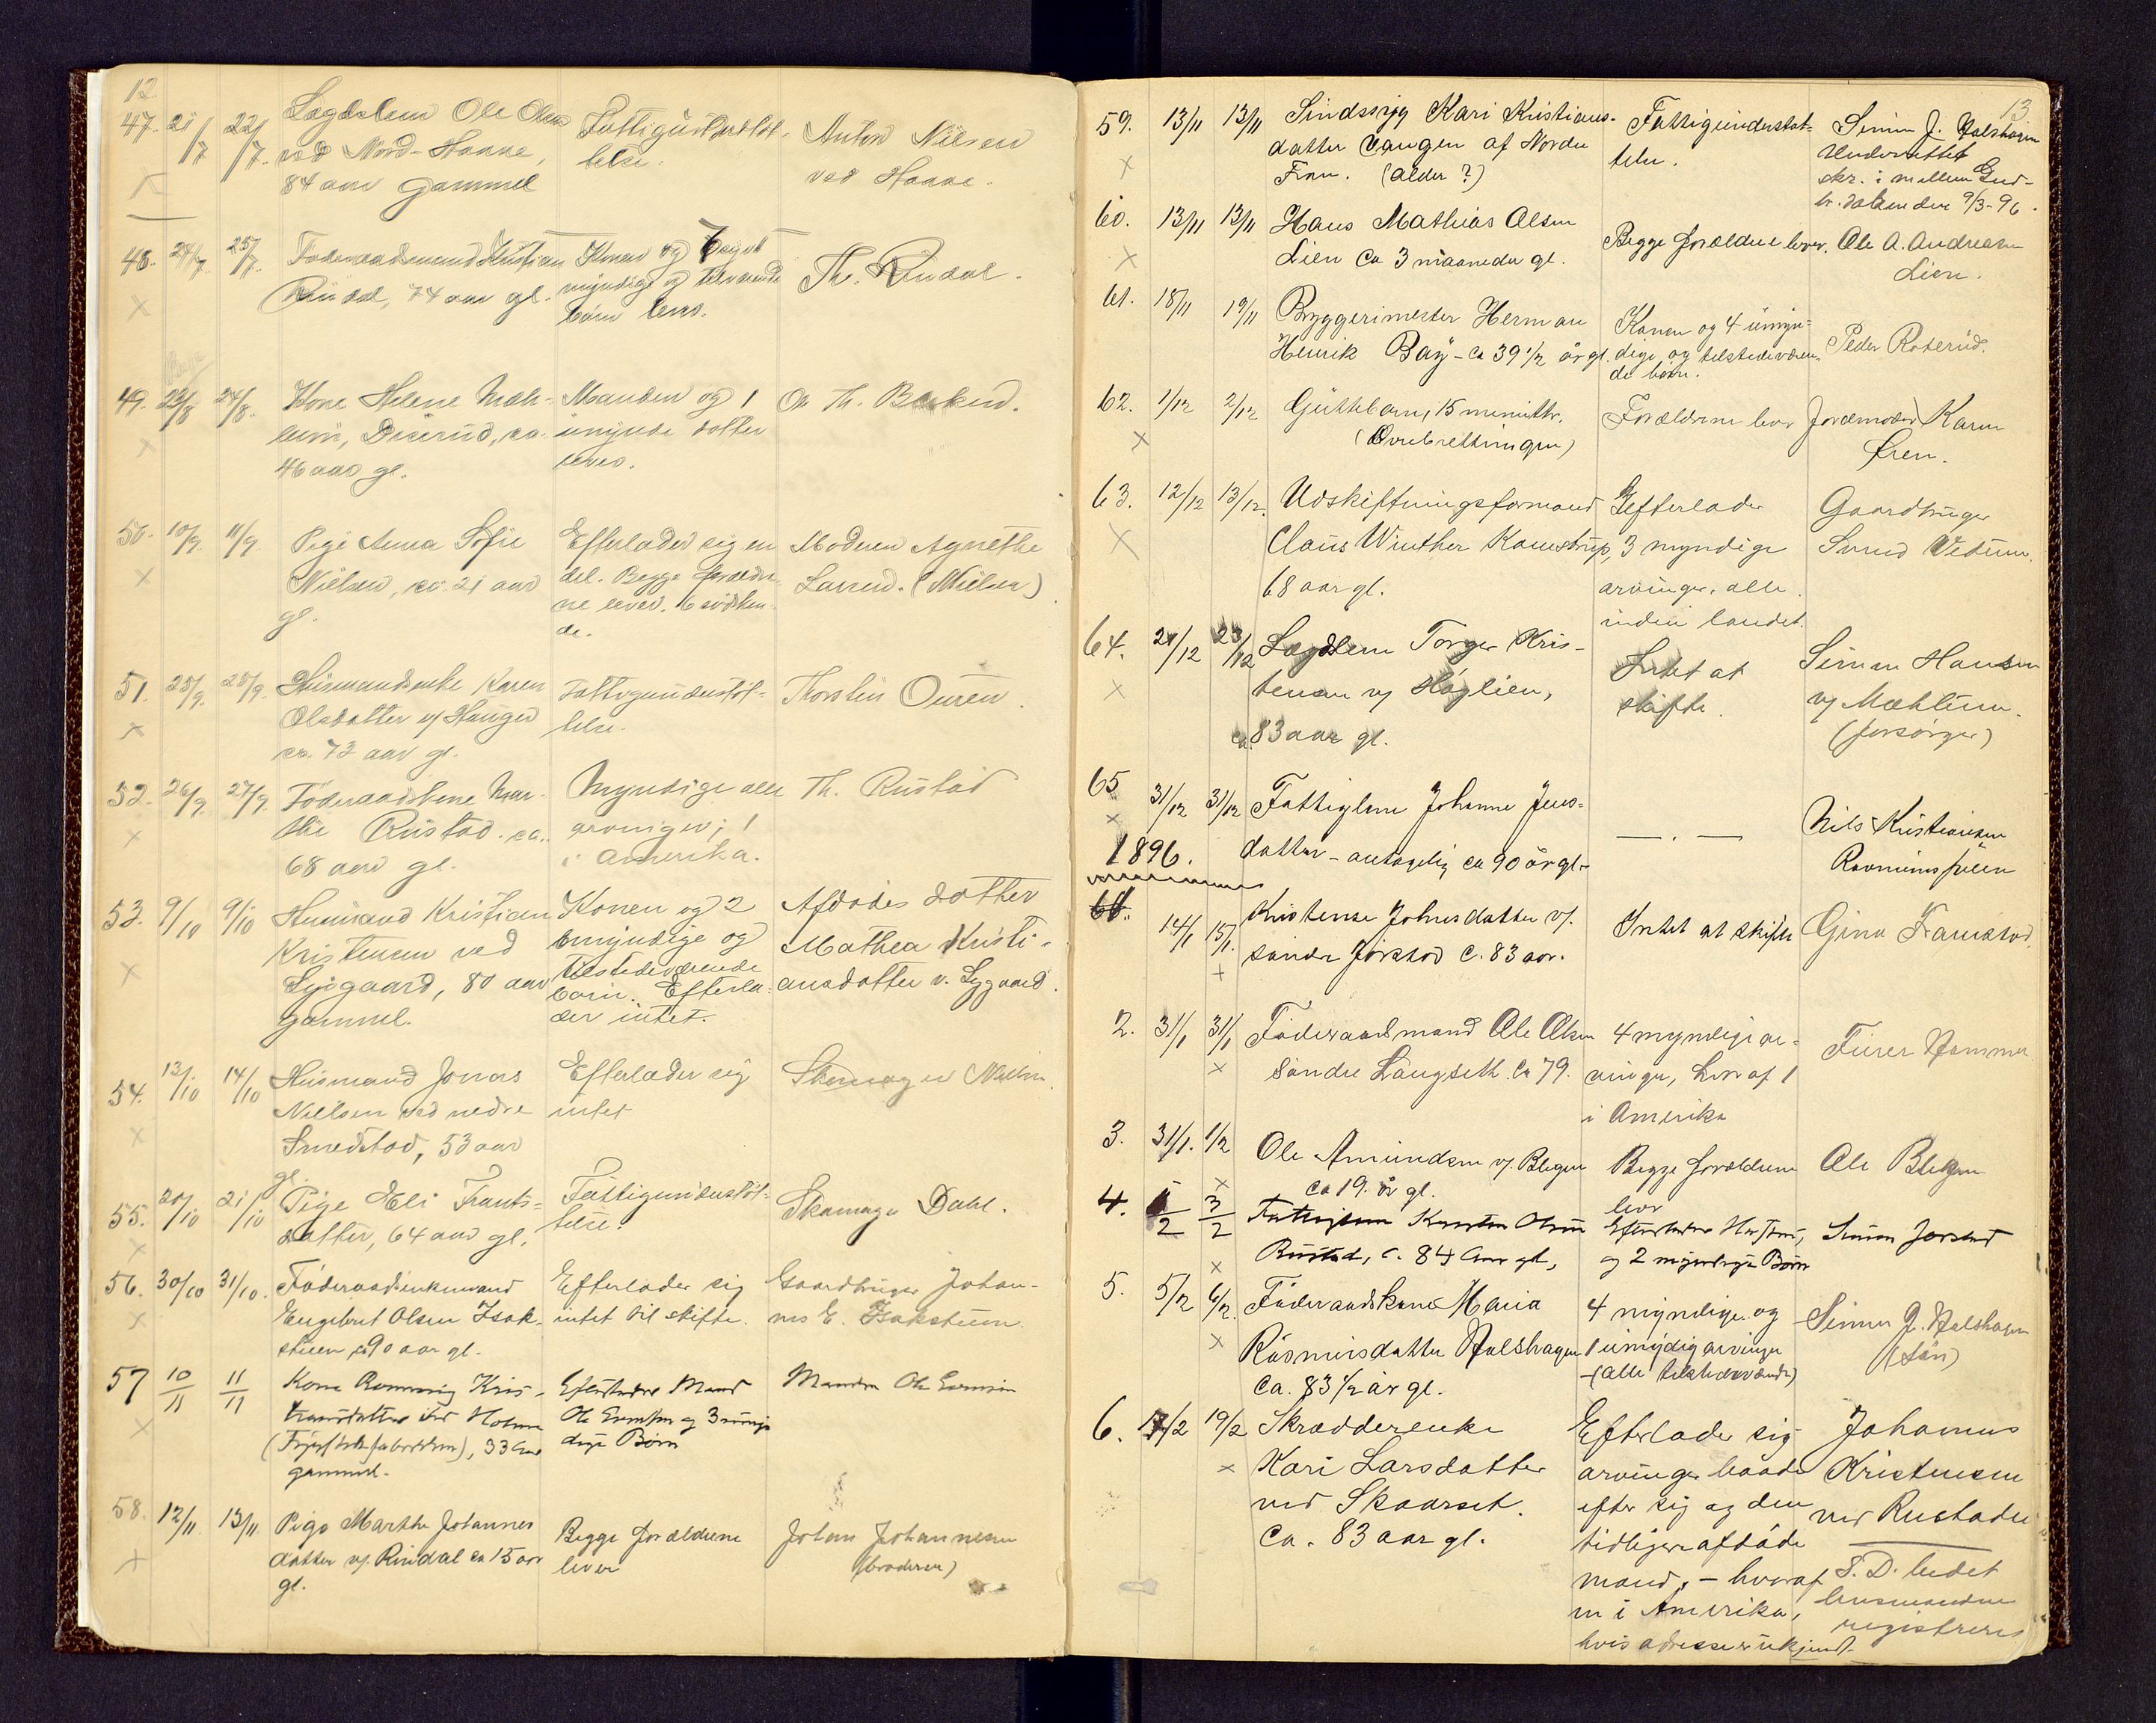 12.
47. 21/7 22/7. Lægdslem Ole Olsen Fattigunderstøt- Anton Nilsen
ved Nord-Haave, telse. ved Haave.
84 aar gammel
48. 24/7. 25/7. Føderaadsmand Kristian Konen og 6 Th. Rindal.
Rindal, 74 aar gl. myndige og
børn leve.
49. 23/8 24/8. Kone Helene Mæh- Manden og 1 O. Th.
lum, ca. umynd. datter
46 aar gl. leve.
50. 10/9. 11/9 Pige Anna Sofie Efterlader sig en Moderen Agnethe
Nielsen, ca. 21 aar del. Begge forældre- Larsen. (Nielsen)
gl. ne lever. 6 søsken-
de.
51. 25/9. 25/9. Husmandsenke Karen Fattigunderstøt- Thorstein Ouren.
Olsdatter v/ Haugen telse.
ca. 73 aar gl.
52. 26/9. 27/9. Føderaadskone Mar- Myndige alle Th. Rustad
the Rustad. ca. arvinger; 1
68 aar gl. i Amerika.
53. 9/10 9/10 Husmand Kristian Konen og 2 Afdødes datter
Kristensen ved umyndige og Mathea Kristi-
Lysgaard, 80 aar tilstedeværende ansdatter v. Lysgaard.
gammel. børn. Efterla-
der intet.
54. 13/10 14/10 Husmand Jonas Efterlader sig Skomager
Nielsen ved nedre intet
Smedstad, 53 aar
gl.
55. 20/10 21/10 Pige Eli Frants- Fattigunderstøt- Skomager Dahl.
datter, 64 aar gl. telse.
56. 30/10 31/10. Føderaadsenkemand Efterlader sig Gaardbruger Johan-
Engebret Olsen Isak- intet til skifte. nes E. Isakstuen.
stuen, ca 90 aar gl.
57 10/11 11/11 Kone Ronnaug Kris- Efterlader Mand Manden Ole Evensen
tiansdatter ved Holmen Ole Evensen og 3 umyn-
33 Aar dige Børn
gammel.
58. 12/11. 13/11. Pige Marthe Johannes Begge forældrene Johan Johannesen
datter v/. Rindal ca 15 aar lever (broderen)
gl.
13
59. 13/11 13/11 Sindssyg Kari Kristians- Fattigunderstøt- Simen J. Dalshagen
datter Vangen af Nordre telse. Underrettet
Fron. (alder?) skr. i mellem Gud-
br. dalen den 9/3-96.
60. 13/11 13/11 Hans Mathias Olsen Begge forældre lever. Ole A. Andreasen
Lien ca 3 maaneder gl. Lien.
61. 18/11 19/11 Bryggerimester Herman Konen og 4 umyn- Peder Roterud.
Henrik Bay - ca 39 1/2 år gl. dige og tilstedeværen-
de børn.
62. 1/12 2/12 Guttebarn, 15 minutter. Forældrene lever Jordmoder Karen
(Øvrebrettingen) Øren.
63. 12/12 13/12. Udskiftningsformand Efterlader Gaardbruger
Claus Winther Kamstrup, 3 myndige Svend Vedum.
68 aar gl. arvinger, alle
inden landet.
64. 21/12 23/12 Lægdslem Torger Kris- Intet at Simen Hansen
tensen v/ Haglien, skifte. v/ Mæhlum.
ca. 83 aar gl. (forsørger)
65 31/12 31/12 Fattiglem Johanne Jens- — . — Nils Kristiansen
datter - antagelig ca 90 år gl.-
1896.
1. 14/1 15/1. Kristense Johnsdatter v/. Intet at skifte Gina Framstad.
søndre Jørstad c. 83 aar.
2. 31/1 31/1 Føderaadsmand Ole Olsen 4 myndige ar- Furer Hammer
Søndre Langseth. ca 79. vinger, hvoraf 1
i Amerika
3. 31/1. 1/2 Ole Amundsen v/. Blegen Begge forældrene Ole Bleken
ca 19. år gl. lever
4. 1/2 3/2 Fattiglem Karsten Olsen Efterlader Hustru, Simen Jørstad
Rustad, c. 84 Aar gl, og 2 myndige Børn
5. 5/2 6/2. Føderaadskone Maria 4 myndige og Simen J. Dalshagen
Rasmusdatter Dalshagen 1 umydig arvinger (Søn)
ca. 83 1/2 år gl. -(alle tilstedeværende)
6. 17/2 19/2 Skrædderenke Efterlader sig Johannes
Kari Larsdatter arvinger baade Kristensen
ved Skaarset. efter sig og den ved Rustaden
ca. 83 aar gl. tidligere afdøde
mand, - hvoraf S. D. ledet
en i Amerika, lensmanden
hvis adresse er ukjendt. registreres